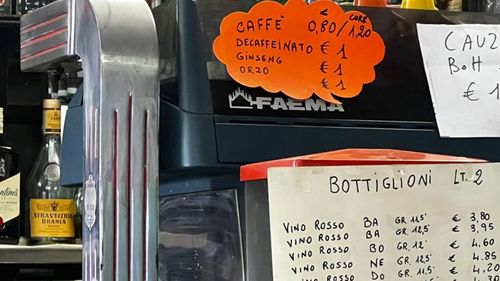 CAFFÈ € 0,80/1,20 CORR
DECAFFEINATO € 1
GINSENG € 1
ORZO € 1
FAEMA
CAUZ
€ 1
BOTTIGLIONI LT. 2
VINO ROSSO BA GR. 11,5° € 3,80
VINO ROSSO BA GR. 12,5° € 3,95
VINO ROSSO BO GR. 12° € 4,60
VINO ROSSO NE GR. 11,5° € 4,85
VINO ROSSO DO GR. 12,5° € 4,20
STRAVECCHIO
BRANCA